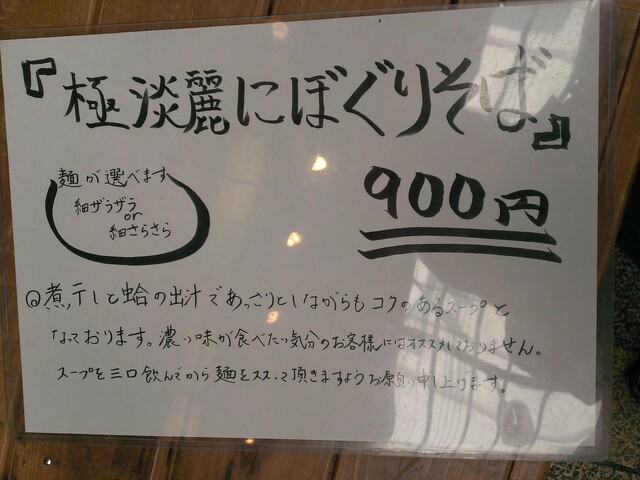 『極淡麗にぼぐりそば』
900円
麺が選べます
細ザラザラ
or
細さらさら
◎煮干しと蛤の出汁であっさりとしながらもコクのあるスープと
なっております。濃い味が食べたい気分のお客様にはオススメしておりません。
スープを三口飲んでから麺をススって頂きますようお願い申し上げます。